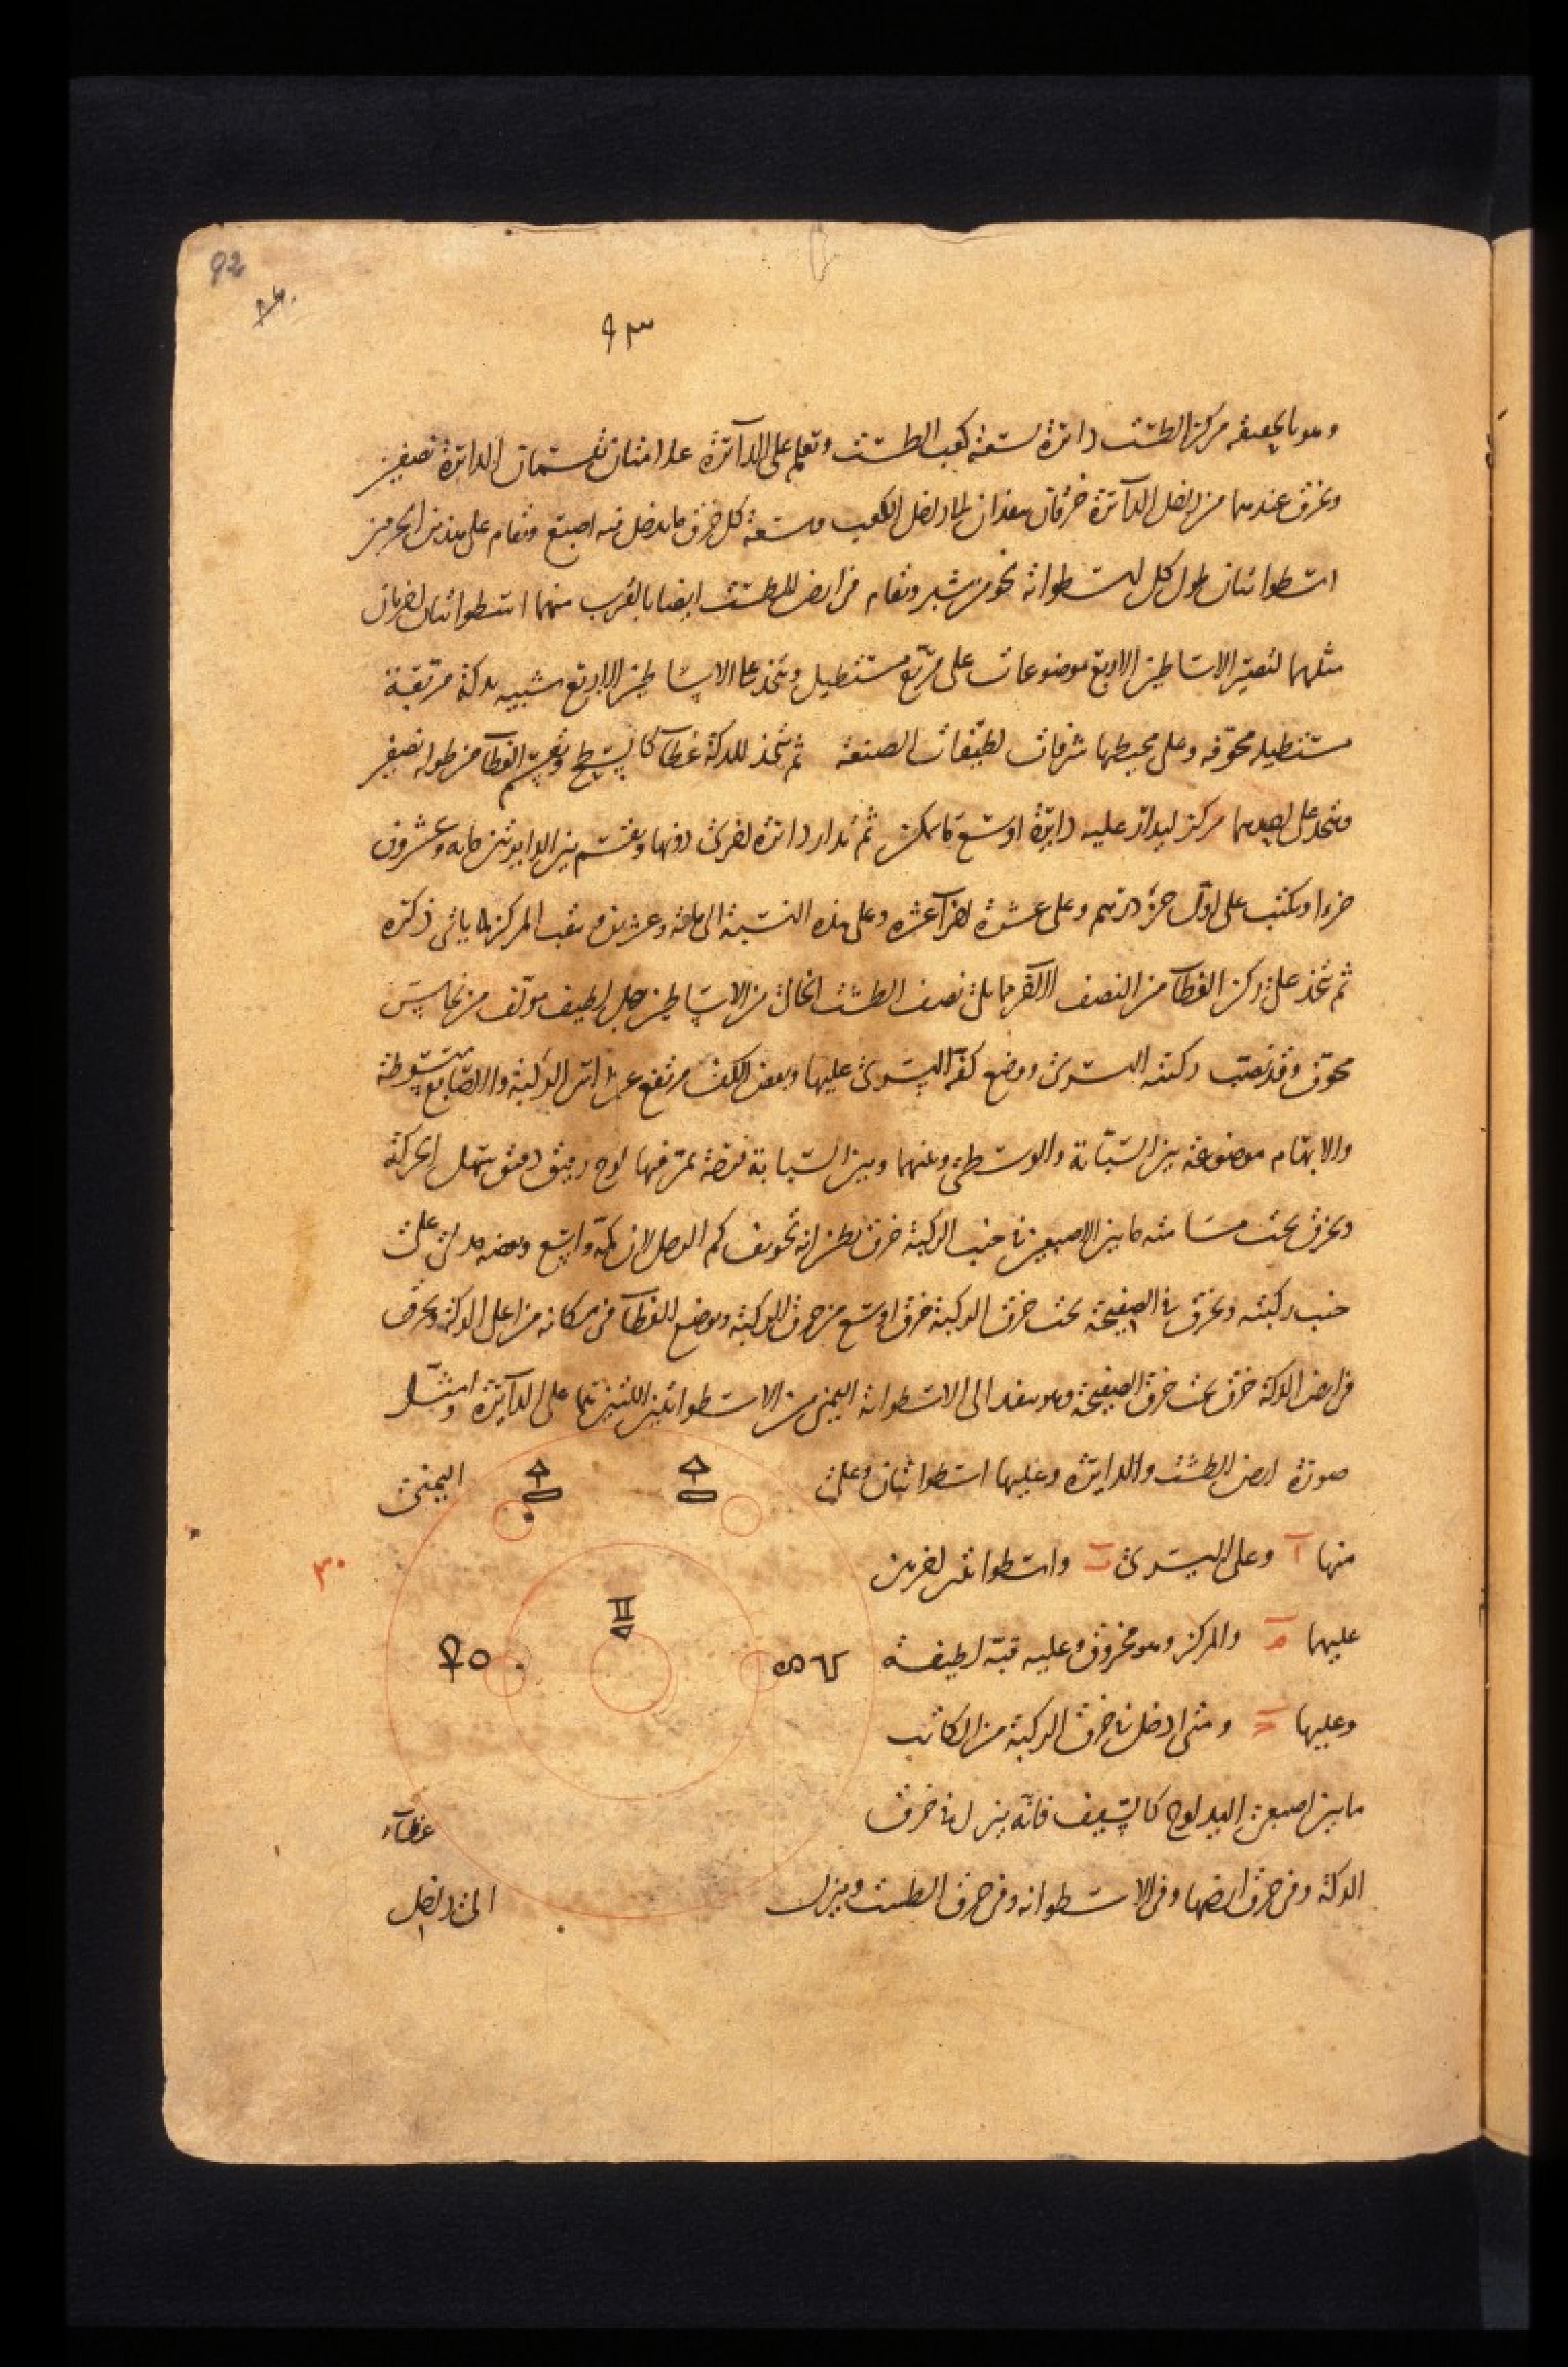 92
٩٣
وهو بالحقيقة مركز الطست دائرة لسعة كعب الطست وتعلم على الدآئرة علامتان تقسمان الدائرة نصفين
ويخرق عندهما من داخل الدآئرة خرقان ينفذان الى داخل الكعب وسعة كل خرق ما يدخل فيه اصبع وتقام على هذين الخرمين
اسطوانتان طول كل اسطوانة نحو من شبر وتقام في ارض الطست ايضا بالقرب منهما اسطوانتان اخريان
مثلهما لتصير الاساطين الاربع موضوعات على مربع مستطيل ويتخذ على الاساطين الاربع شبيه بدكة مرتفعة
مستطيلة مجوفه وعلى محيطها شرفات لطيفات الصنعة ثم يتخذ للدكة غطآ كالسطح ويقسم الغطآ من طوله نصفين
ويتخذ على احدهما مركز ليدار عليه دايرة اوسع ما يمكن ثم تدار دائرة اخرى دونها ويقسم بين الدايرتين مايه وعشرون
جزءا ويكتب على اول جزء درهم وعلى عشرة اجزآ عشره وعلى هذه النسبة الى مائة وعشرين ويثقب المركز لما ياتى ذكره
ثم يتخذ على مركز الغطآ من النصف الاخر مما يلى نصف الطست الخالى من الاساطين رجل لطيف مولف من نحاس
مجوف وقد نصب ركبته اليسرى ووضع كفه اليسرى عليها وبعض الكف مرتفع عن راس الركبة والاصابع مبسوطة
والابهام موضوعة بين السبابة والوسطى وبينهما وبين السبابة فرضة يمر فيها لوح رقيق دقيق سهل الحركة
ويخرق تحت مسامتة ما بين الاصبعين فى جنب الركبة خرق يظن انه تجويف كم الرجل لان كمه واسع وبعضه مدلى على
جنب ركبته ويخرق فى الصفيحة تحت خرق الركبة خرق اوسع من خرق الركبة ويوضع الغطآ فى مكانه من اعلى الدكة ويخرق
فى ارض الدكة خرق تحت خرق الصفيحة وهو ينفذ الى الاسطوانة اليمنى من الاسطوانتين اللتين هما على الدآئرة وامثل
صورة ارض الطست والدايرة وعليها اسطوانتان وعلى اليمنى
منها آ وعلى اليسرى ب واسطوانتين اخريين
عليهما م والمركز وهو مخروق وعليه قبة لطيفة
وعليها ح ومتى ادخل فى خرق الركبة من الكاتب
ما بين اصبعى اليد لوح كالسيف فانه ينزل فى خرق غطآء
الدكة وفى خرق ارضها وفى الاسطوانة وفى خرق الطست وينزل الى داخل
٣٠